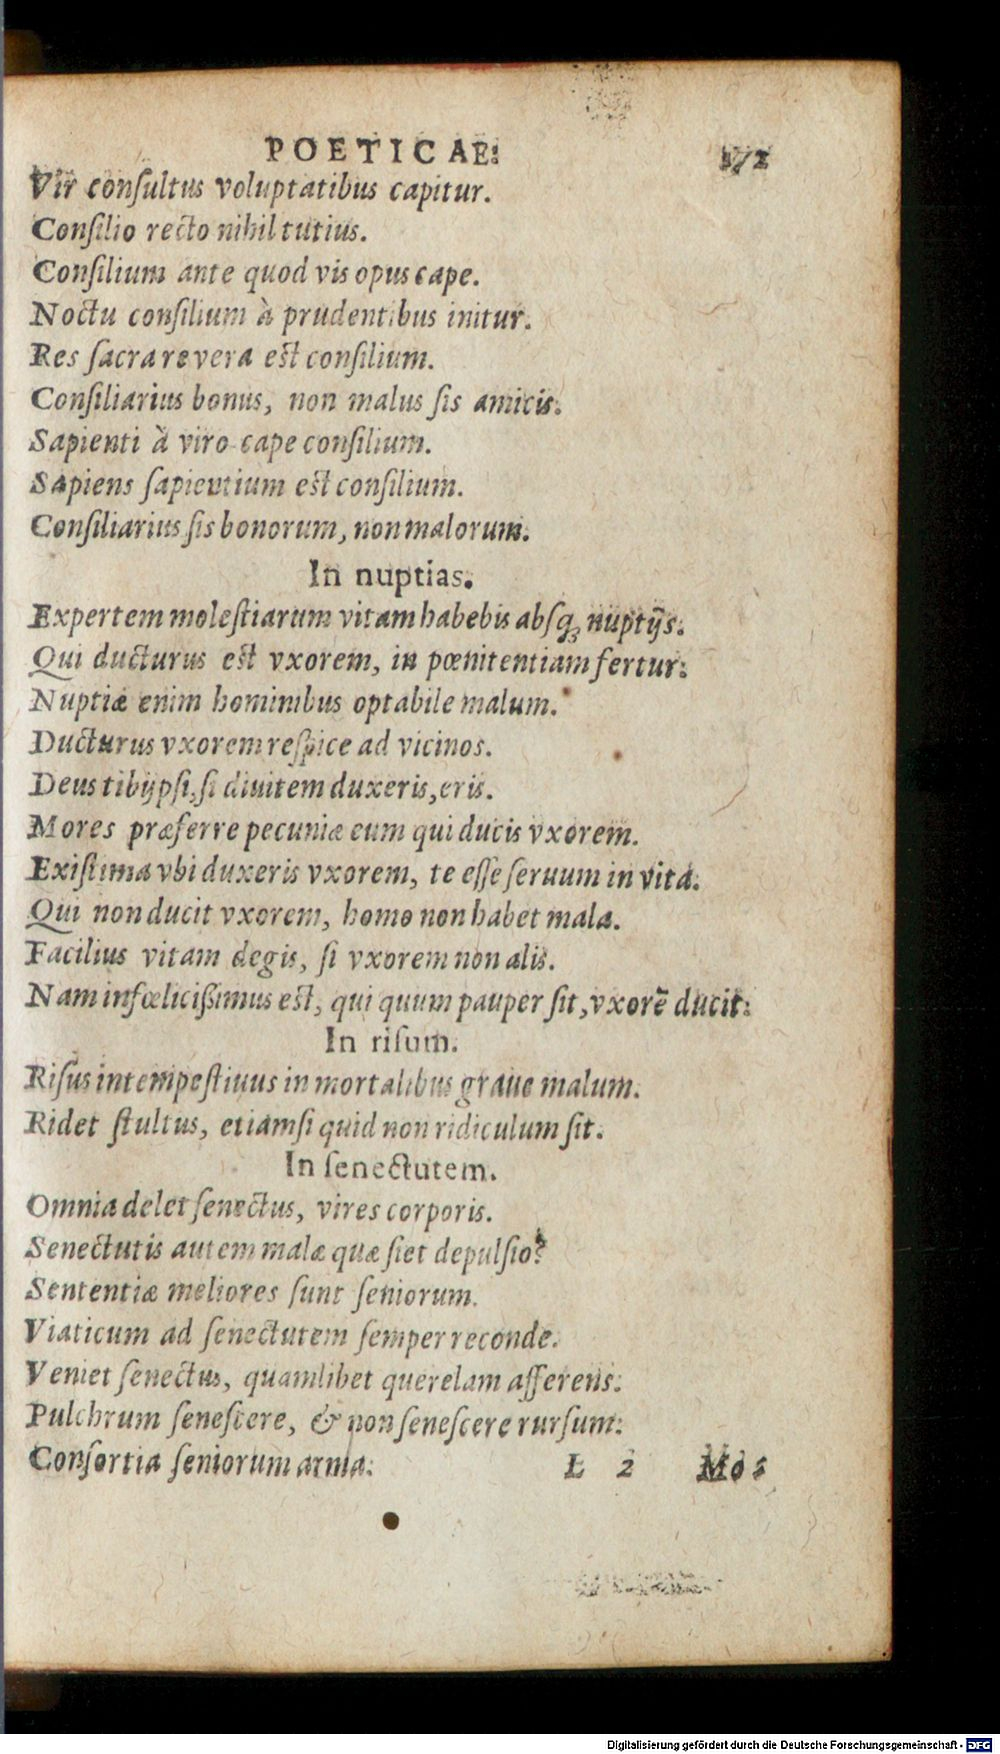 POETICAE.
Vir conſultus voluptatibus capitur.
Conſilio recto nihil tutius.
Conſilium ante quod vis opus cape.
Noctu conſilium à prudentibus initur.
Res ſacra revera eſt conſilium.
Conſiliarius bonus, non malus ſis amicis.
Sapienti à viro cape conſilium.
Sapiens ſapientium eſt conſilium.
Conſiliarius ſis bonorum, non malorum.
In nuptias.
Expertem moleſtiarum vitam habebis abſq; nuptijs.
Qui ducturus eſt vxorem, in pœnitentiam fertur.
Nuptiæ enim hominibus optabile malum.
Ducturus vxorem reſpice ad vicinos.
Deus tibijpſi, ſi diuitem duxeris, eris.
Mores præferre pecuniæ eum qui ducis vxorem.
Exiſtima vbi duxeris vxorem, te eſſe ſeruum in vita.
Qui non ducit vxorem, homo non habet mala.
Facilius vitam degis, ſi vxorem non alis.
Nam infœlicißimus eſt, qui quum pauper ſit, vxorē ducit.
In riſum.
Riſus intempeſtiuus in mortalibus graue malum.
Ridet ſtultus, etiamſi quid non ridiculum ſit.
In ſenectutem.
Omnia delet ſenectus, vires corporis.
Senectutis autem malæ quæ ſiet depulſio?
Sententiæ meliores ſunt ſeniorum.
Viaticum ad ſenectutem ſemper reconde.
Veniet ſenectus, quamlibet querelam afferens.
Pulchrum ſeneſcere, & non ſeneſcere rurſum.
Conſortia ſeniorum ama.
L 2
Digitalisierung gefördert durch die Deutsche Forschungsgemeinschaft - DFG